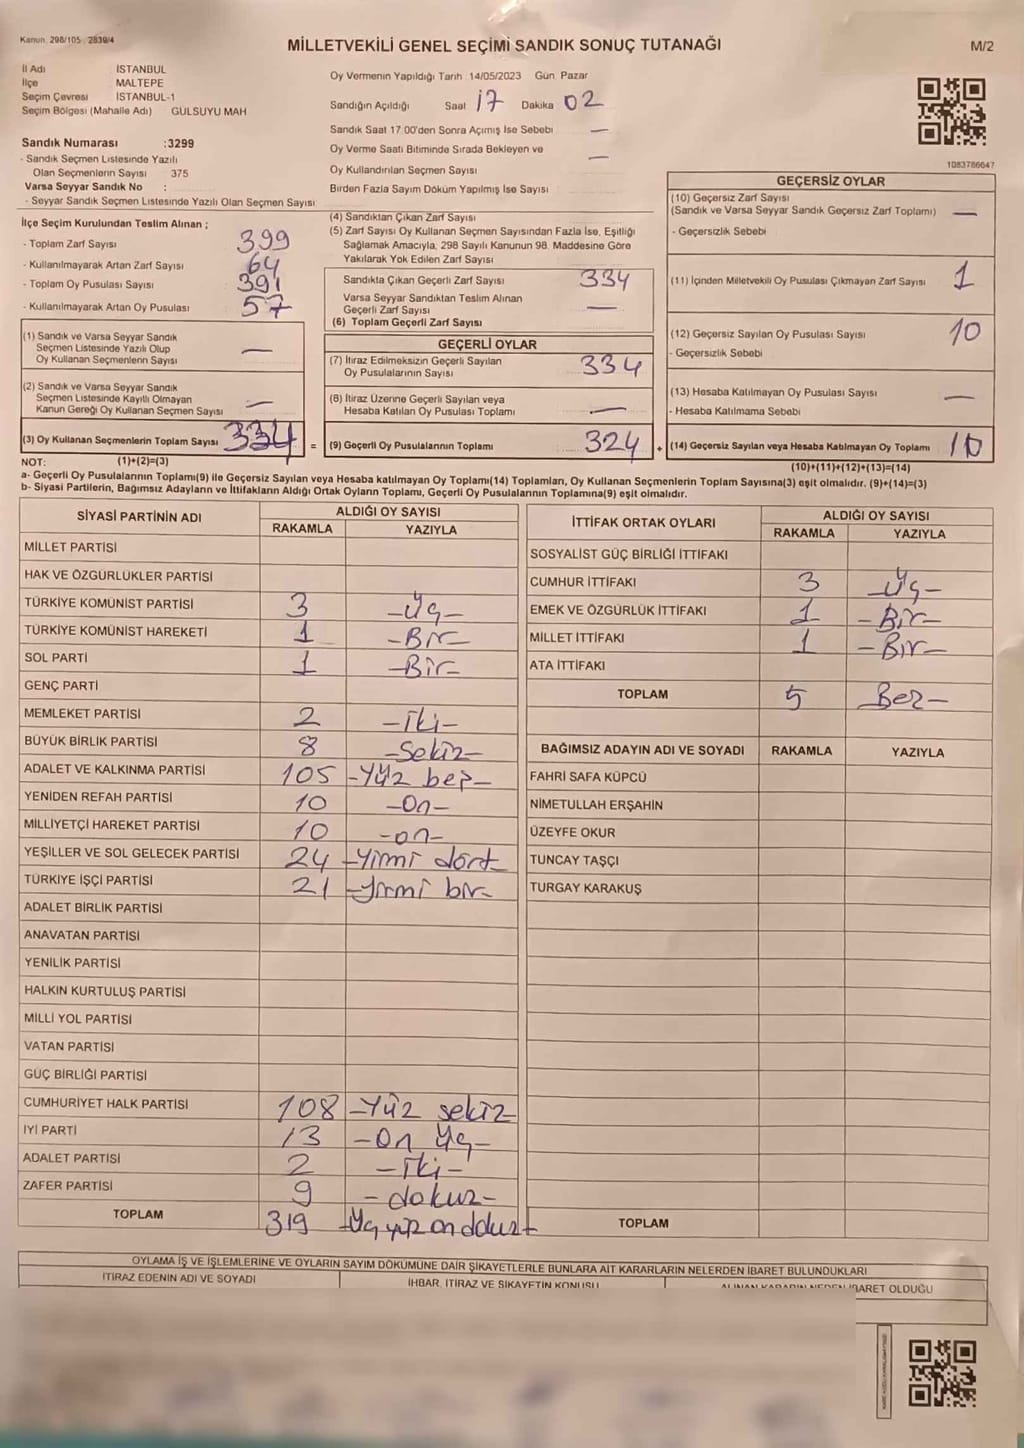 Kanun. 298/105 , 2839/4
MİLLETVEKİLİ GENEL SEÇİMİ SANDIK SONUÇ TUTANAĞI
M/2
İl Adı İSTANBUL
İlçe MALTEPE
Seçim Çevresi İSTANBUL-1
Seçim Bölgesi (Mahalle Adı) GÜLSUYU MAH
Sandık Numarası :3299
- Sandık Seçmen Listesinde Yazılı
Olan Seçmenlerin Sayısı 375
Varsa Seyyar Sandık No :
- Seyyar Sandık Seçmen Listesinde Yazılı Olan Seçmen Sayısı
Oy Vermenin Yapıldığı Tarih 14/05/2023 Gün Pazar
Sandığın Açıldığı Saat 17 Dakika 02
Sandık Saat 17.00'den Sonra Açılmış İse Sebebi —
Oy Verme Saati Bitiminde Sırada Bekleyen ve
Oy Kullandırılan Seçmen Sayısı —
Birden Fazla Sayım Döküm Yapılmış İse Sayısı
1083786647
İlçe Seçim Kurulundan Teslim Alınan ;
- Toplam Zarf Sayısı 399
- Kullanılmayarak Artan Zarf Sayısı 64
- Toplam Oy Pusulası Sayısı 391
- Kullanılmayarak Artan Oy Pusulası 57
(1) Sandık ve Varsa Seyyar Sandık
Seçmen Listesinde Yazılı Olup
Oy Kullanan Seçmenlerin Sayısı —
(2) Sandık ve Varsa Seyyar Sandık
Seçmen Listesinde Kayıtlı Olmayan
Kanun Gereği Oy Kullanan Seçmen Sayısı —
(3) Oy Kullanan Seçmenlerin Toplam Sayısı 334
(1)+(2)=(3)
(4) Sandıktan Çıkan Zarf Sayısı
(5) Zarf Sayısı Oy Kullanan Seçmen Sayısından Fazla İse, Eşitliği
Sağlamak Amacıyla, 298 Sayılı Kanunun 98. Maddesine Göre
Yakılarak Yok Edilen Zarf Sayısı
Sandıkta Çıkan Geçerli Zarf Sayısı 334
Varsa Seyyar Sandıktan Teslim Alınan
Geçerli Zarf Sayısı —
(6) Toplam Geçerli Zarf Sayısı
GEÇERLİ OYLAR
(7) İtiraz Edilmeksizin Geçerli Sayılan
Oy Pusulalarının Sayısı 334
(8) İtiraz Üzerine Geçerli Sayılan veya
Hesaba Katılan Oy Pusulası Toplamı —
= (9) Geçerli Oy Pusulalarının Toplamı 324
GEÇERSİZ OYLAR
(10) Geçersiz Zarf Sayısı
(Sandık ve Varsa Seyyar Sandık Geçersiz Zarf Toplamı) —
- Geçersizlik Sebebi
(11) İçinden Milletvekili Oy Pusulası Çıkmayan Zarf Sayısı 1
(12) Geçersiz Sayılan Oy Pusulası Sayısı 10
- Geçersizlik Sebebi
(13) Hesaba Katılmayan Oy Pusulası Sayısı —
- Hesaba Katılmama Sebebi
+ (14) Geçersiz Sayılan veya Hesaba Katılmayan Oy Toplamı 10
(10)+(11)+(12)+(13)=(14)
NOT:
a- Geçerli Oy Pusulalarının Toplamı(9) ile Geçersiz Sayılan veya Hesaba katılmayan Oy Toplamı(14) Toplamları, Oy Kullanan Seçmenlerin Toplam Sayısına(3) eşit olmalıdır. (9)+(14)=(3)
b- Siyasi Partilerin, Bağımsız Adayların ve İttifakların Aldığı Ortak Oyların Toplamı, Geçerli Oy Pusulalarının Toplamına(9) eşit olmalıdır.
SİYASİ PARTİNİN ADI ALDIĞI OY SAYISI
RAKAMLA YAZIYLA
MİLLET PARTİSİ
HAK VE ÖZGÜRLÜKLER PARTİSİ
TÜRKİYE KOMÜNİST PARTİSİ 3 -Üç-
TÜRKİYE KOMÜNİST HAREKETİ 1 -Bir-
SOL PARTİ 1 -Bir-
GENÇ PARTİ
MEMLEKET PARTİSİ 2 -İki-
BÜYÜK BİRLİK PARTİSİ 8 -Sekiz-
ADALET VE KALKINMA PARTİSİ 105 -Yüz beş-
YENİDEN REFAH PARTİSİ 10 -On-
MİLLİYETÇİ HAREKET PARTİSİ 10 -on-
YEŞİLLER VE SOL GELECEK PARTİSİ 24 -Yirmi dört-
TÜRKİYE İŞÇİ PARTİSİ 21 -Yirmi bir-
ADALET BİRLİK PARTİSİ
ANAVATAN PARTİSİ
YENİLİK PARTİSİ
HALKIN KURTULUŞ PARTİSİ
MİLLİ YOL PARTİSİ
VATAN PARTİSİ
GÜÇ BİRLİĞİ PARTİSİ
CUMHURİYET HALK PARTİSİ 108 -Yüz sekiz-
İYİ PARTİ 13 -On Üç-
ADALET PARTİSİ 2 -İki-
ZAFER PARTİSİ 9 -dokuz-
TOPLAM 319
İTTİFAK ORTAK OYLARI ALDIĞI OY SAYISI
RAKAMLA YAZIYLA
SOSYALİST GÜÇ BİRLİĞİ İTTİFAKI
CUMHUR İTTİFAKI 3 -Üç-
EMEK VE ÖZGÜRLÜK İTTİFAKI 1 -Bir-
MİLLET İTTİFAKI 1 -Bir-
ATA İTTİFAKI
TOPLAM 5 Beş-
BAĞIMSIZ ADAYIN ADI VE SOYADI RAKAMLA YAZIYLA
FAHRİ SAFA KÜPCÜ
NİMETULLAH ERŞAHİN
ÜZEYFE OKUR
TUNCAY TAŞÇI
TURGAY KARAKUŞ
TOPLAM
OYLAMA İŞ VE İŞLEMLERİNE VE OYLARIN SAYIM DÖKÜMÜNE DAİR ŞİKAYETLERLE BUNLARA AİT KARARLARIN NELERDEN İBARET BULUNDUKLARI
İTİRAZ EDENİN ADI VE SOYADI
İHBAR, İTİRAZ VE ŞİKAYETİN KONUSU
ALINAN KARARIN NEDEN İBARET OLDUĞU